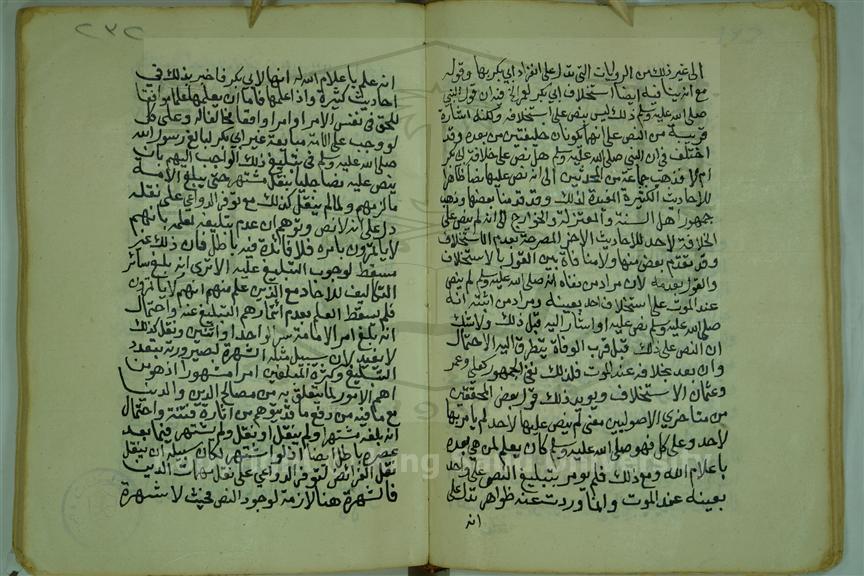 الى غير ذلك من الروايات التى تدل على انفراد ابي بكر بها وقوله
مع انه ينافيه ايضا استخلاف ابي بكر لعمر فان قول النبي
صلى الله عليه وسلم ذلك ليس بنص على استخلافه ولكنه اشارة
قريبة من النص على انهما يكونان خليفتين من بعده وقد
اختلف في ان النبي صلى الله عليه وسلم هل نص على خلافة ابي بكر
ام لا فذهب جماعة من المحدثين الى انه نص عليها نصا ظاهرا
للاحاديث الكثيرة المفيدة لذلك وقد قدمنا بعضها وذهب
جمهور اهل السنة والمعتزلة والخوارج الى انه لم ينص على
الخلافة لاحد للاحاديث الاخر المصرحة بعدم الاستخلاف
وقد تقدم بعض منها ولا منافاة بين القول بالاستخلاف
والقول بعدمه لان مراد من نفاه انه صلى الله عليه وسلم لم ينص
عند الموت على استخلاف احد بعينه ومراد من اثبته انه
صلى الله عليه وسلم نص عليه او اشار اليه قبل ذلك ولا شك
ان النص على ذلك قبل قرب الوفاة يتطرق اليه الاحتمال
وان بعد بخلافه عند الموت فلذلك نفى الجمهور كعلي وعمر
وعثمان الاستخلاف ويؤيد ذلك قول بعض المحققين
من متاخري الاصوليين معنى لم ينص عليها لاحد لم يامر بها
لاحد وعلى كل فهو صلى الله عليه وسلم كان يعلم لمن هي بعده
باعلام الله ومع ذلك فلم يؤمر بتبليغ النص على واحد
بعينه عند الموت وانما وردت عنه ظواهر تدل على
انه
انه علم باعلام الله له انها لابي بكر فاخبر بذلك في
احاديث كثيرة واذا علمها فاما ان يعلمها علما موافقا
للحق في نفس الامر او امرا واقعا مخالفا له وعلى كل
لو وجب على الامة مبايعة غير ابي بكر لبالغ رسول الله
صلى الله عليه وسلم في تبليغ ذلك الواجب اليهم بان
ينص عليه نصا جليا ينقل مشتهرا حتى يبلغ الامة
ما لزمهم ولما لم ينقل كذلك مع توفر الدواعي على نقله
دل على انه لا نص وتوهم ان عدم تبليغه لعلمه بانهم
لا ياتمرون بامره فلا فائدة فيه باطل فان ذلك غير
مسقط لوجوب التبليغ عليه الا ترى انه بلغ سائر
التكاليف للاحاد مع الذين علم منهم انهم لا ياتمرون
فلم يسقط العلم بعدم ائتمارهم التبليغ عنه واحتمال
انه بلغ امر الامامة سرا واحدا واثنين ونقل كذلك
لا يفيد لان سبيل مثله الشهرة لصيرورته بتعدد
التبليغ وكثرة المبلغين امرا مشهورا اذ هو من
اهم الامور لما يتعلق به من مصالح الدين والدنيا
مع ما فيه من دفع ما قد يتوهم من اثارة فتنة واحتمال
انه بلغه مشتهرا ولم ينقل او نقل ولم يشتهر فيما بعد
عصره باطل ايضا اذ لو اشتهر لكان سبيله ان ينقل
نقل الفرائض لتوفر الدواعي على نقل مهمات الدين
فالشهرة هنا لازمة لوجود النص فحيث لا شهرة